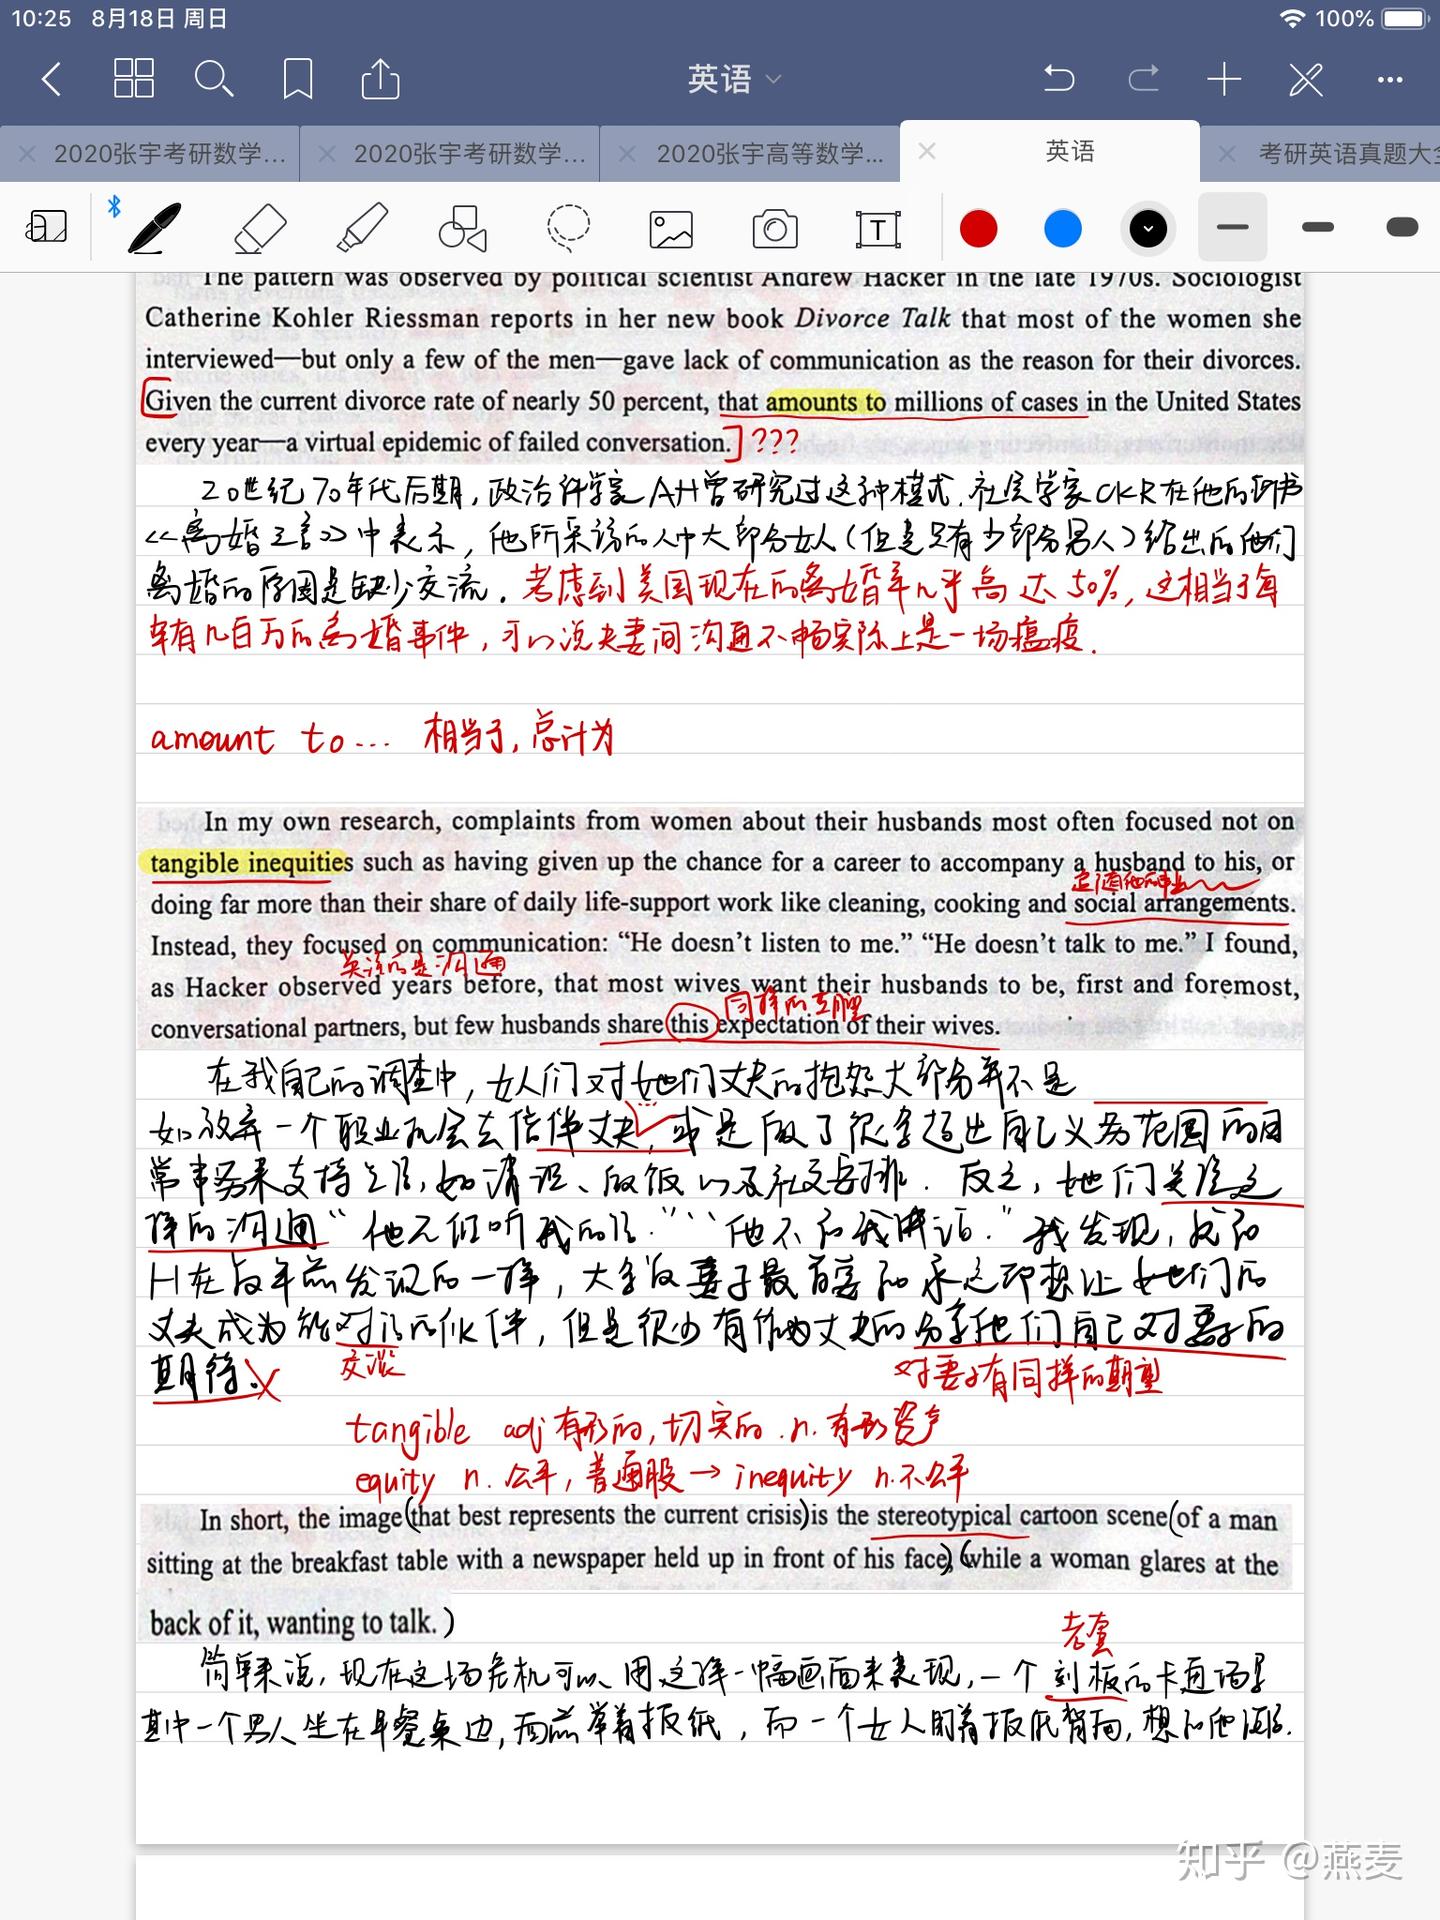 10:25 8月18日 周日 100%
英语
2020张宇考研数学... 2020张宇考研数学... 2020张宇高等数学... 英语 考研英语真题大全
The pattern was observed by political scientist Andrew Hacker in the late 1970s. Sociologist
Catherine Kohler Riessman reports in her new book Divorce Talk that most of the women she
interviewed—but only a few of the men—gave lack of communication as the reason for their divorces.
[Given the current divorce rate of nearly 50 percent, that amounts to millions of cases in the United States
every year—a virtual epidemic of failed conversation.]???
20世纪70年代后期,政治科学家AH曾研究过这种模式.社会学家CKR在他的新书
<<离婚之言>>中表示,他所采访的人中大部分女人(但是只有少部分男人)给出的他们
离婚的原因是缺少交流.考虑到美国现在的离婚率几乎高达50%,这相当于每
年有几百万的离婚事件,可以说夫妻间沟通不畅实际上是一场瘟疫.
amount to... 相当于,总计为
In my own research, complaints from women about their husbands most often focused not on
tangible inequities such as having given up the chance for a career to accompany a husband to his, or
追随他的事业
doing far more than their share of daily life-support work like cleaning, cooking and social arrangements.
Instead, they focused on communication: “He doesn’t listen to me.” “He doesn’t talk to me.” I found,
关注的是沟通
as Hacker observed years before, that most wives want their husbands to be, first and foremost,
同样的
conversational partners, but few husbands share this expectation of their wives.
在我自己的调查中,女人们对她们丈夫的抱怨大部分并不是
如放弃一个职业机会去陪伴丈夫,或是做了很多超出自己义务范围的日
常事务来支持生活,如清洁、做饭以及社交安排.反之,她们关注这
样的沟通“他不倾听我的话.”“他不和我讲话.”我发现,就和
H在数年前发现的一样,大多数妻子最首要和永远都想让她们的
丈夫成为能对话的伙伴,但是很少有作为丈夫的分享他们自己对妻子的
期待.
交谈 对妻子有同样的期望
tangible adj有形的,切实的.n.有形资产
equity n.公平,普通股→inequity n.不公平
In short, the image(that best represents the current crisis)is the stereotypical cartoon scene(of a man
sitting at the breakfast table with a newspaper held up in front of his face,)(while a woman glares at the
back of it, wanting to talk.)
老套
简单来说,现在这场危机可以用这样一幅画面来表现,一个刻板的卡通场景
其中一个男人坐在早餐桌边,面前举着报纸,而一个女人盯着报纸背面,想和他说话.
知乎 @燕麦